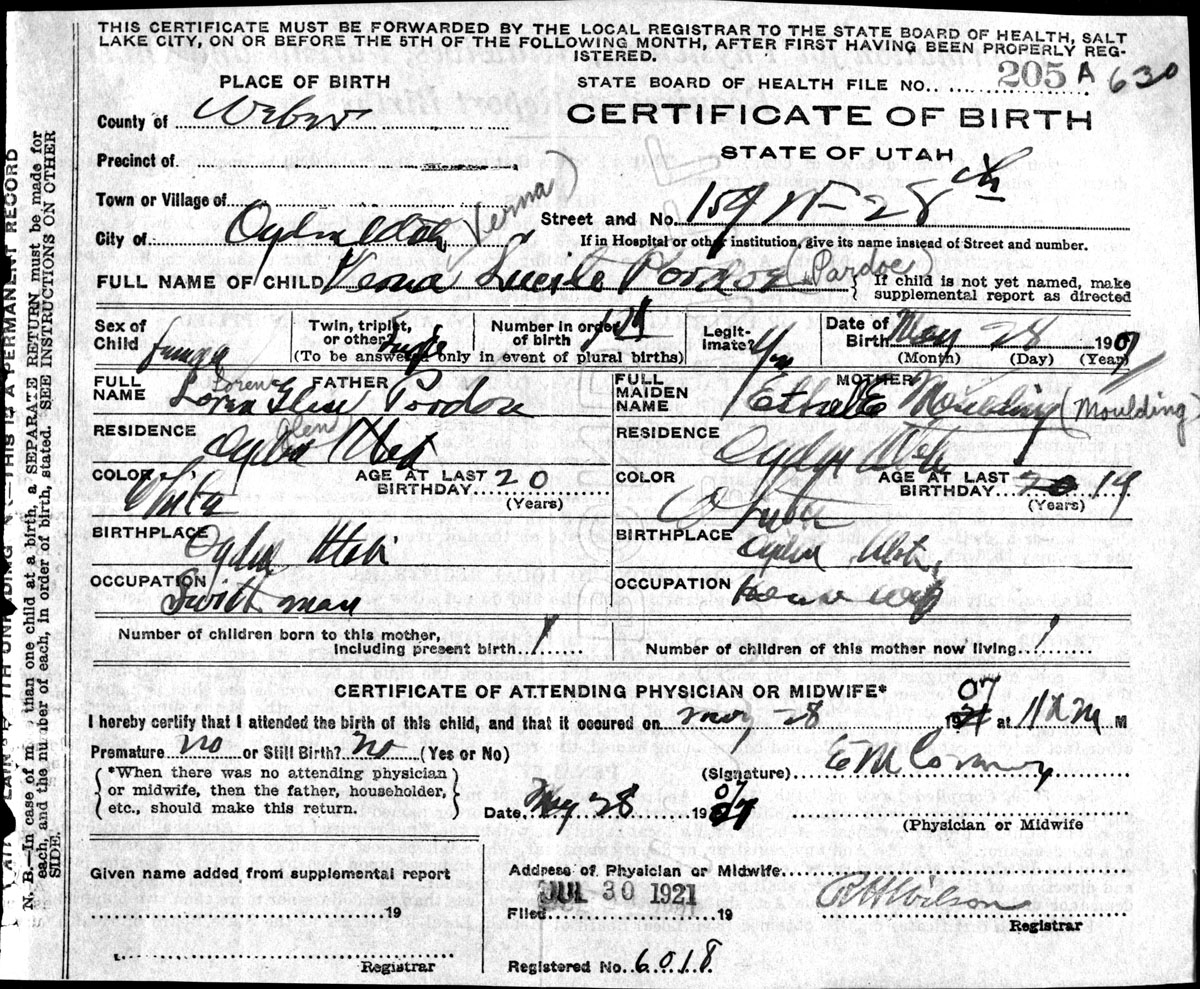 THIS CERTIFICATE MUST BE FORWARDED BY THE LOCAL REGISTRAR TO THE STATE BOARD OF HEALTH, SALT
LAKE CITY, ON OR BEFORE THE 5TH OF THE FOLLOWING MONTH, AFTER FIRST HAVING BEEN PROPERLY REG-
ISTERED.
PLACE OF BIRTH
STATE BOARD OF HEALTH FILE NO. 205 A 630
County of Weber
CERTIFICATE OF BIRTH
Precinct of
STATE OF UTAH
Town or Village of
Street and No. 28th
City of Ogden Utah (Verna)
If in Hospital or other institution, give its name instead of Street and number.
FULL NAME OF CHILD Verna Lucile Pardoe (Pardoe)
If child is not yet named, make
supplemental report as directed
Sex of Child
Twin, triplet, or other
(To be answered only in event of plural births)
Number in order of birth 1st
Legit-imate? Yes
Date of Birth May 28 1907
(Month) (Day) (Year)
FULL NAME FATHER Loren Glen Pardoe
Loren
Glen
FULL MAIDEN NAME MOTHER Moulding (Moulding)
RESIDENCE Ogden Utah
RESIDENCE Ogden Utah
COLOR White
AGE AT LAST BIRTHDAY 20 (Years)
COLOR White
AGE AT LAST BIRTHDAY 20 19 (Years)
BIRTHPLACE Ogden Utah
BIRTHPLACE Ogden Utah
OCCUPATION Switch man
OCCUPATION House wife
Number of children born to this mother, including present birth 1
Number of children of this mother now living 1
CERTIFICATE OF ATTENDING PHYSICIAN OR MIDWIFE*
I hereby certify that I attended the birth of this child, and that it occured on May 28 1907 at 11 A M M
Premature no or Still Birth? no (Yes or No)
*When there was no attending physician
or midwife, then the father, householder,
etc., should make this return.
(Signature) E M Conroy
Date May 28 1907
(Physician or Midwife
Given name added from supplemental report
19
Registrar
Address of Physician or Midwife
JUL 30 1921
Filed 19
R H Wilson
Registrar
Registered No. 6018
N. B.—In case of more than one child at a birth, a SEPARATE RETURN must be made for
each, and the number of each, in order of birth, stated. SEE INSTRUCTIONS ON OTHER
SIDE.
THIS IS A PERMANENT RECORD